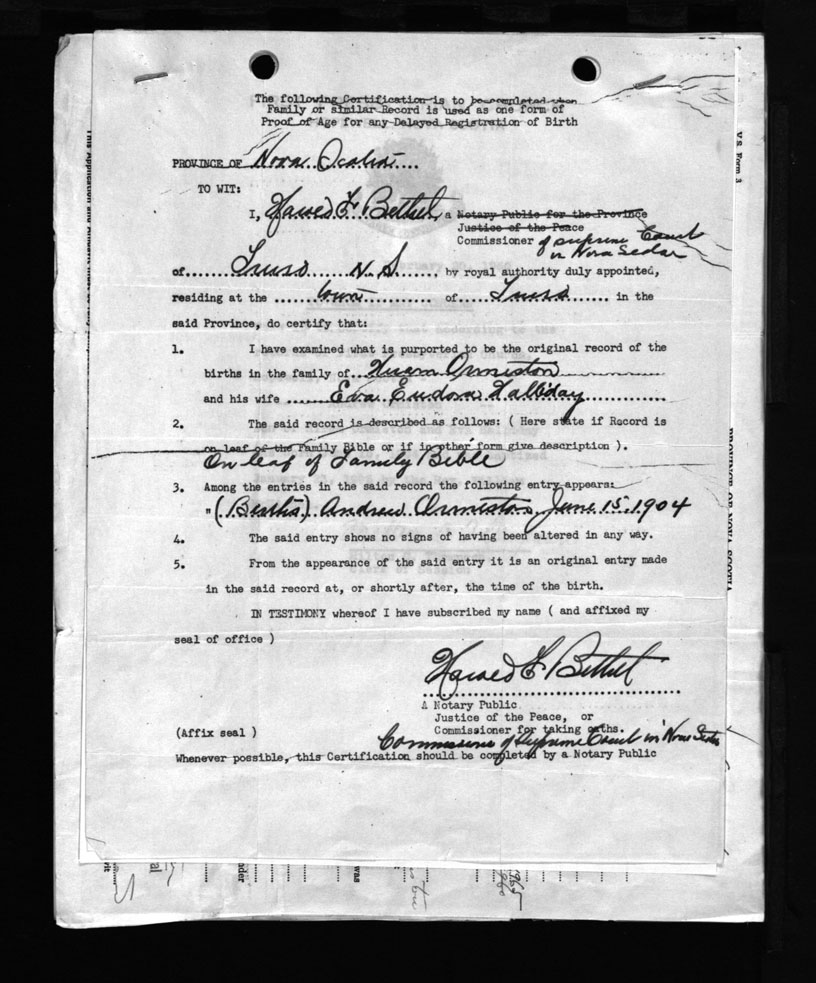 The following Certification is to be completed when
Family or similar Record is used as one form of
Proof of Age for any Delayed Registration of Birth
PROVINCE OF Nova Scotia....
TO WIT:
I, F. Bethel, a Notary Public for the Province
Justice of the Peace
Commissioner of Supreme Court
in Nova Scotia
of....... Truro ...... N.S....... by royal authority duly appointed,
residing at the ...... town ............ of..... Truro ....... in the
said Province, do certify that:
1. I have examined what is purported to be the original record of the
births in the family of Hiram Ormiston
and his wife ...... Eva Eudora Halliday ..............
2. The said record is described as follows: ( Here state if Record is
on leaf of the Family Bible or if in other form give description ).
On leaf of Family Bible
3. Among the entries in the said record the following entry appears:
"(Births) Andrew Ormiston, June 15, 1904
4. The said entry shows no signs of having been altered in any way.
5. From the appearance of the said entry it is an original entry made
in the said record at, or shortly after, the time of the birth.
IN TESTIMONY whereof I have subscribed my name ( and affixed my
seal of office )
F. Bethel
A Notary Public
Justice of the Peace, or
Commissioner for taking oaths.
(Affix seal )
Commissioner of Supreme Court in Nova Scotia
Whenever possible, this Certification should be completed by a Notary Public
V.S. Form 3
PROVINCE OF NOVA SCOTIA
was